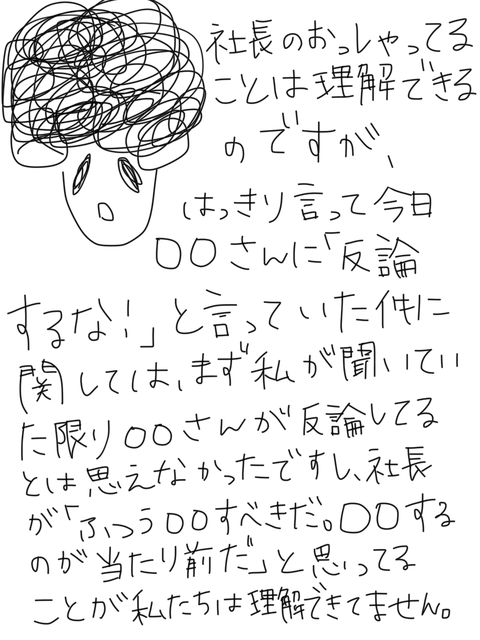 社長のおっしゃってる
ことは理解できる
のですが、
はっきり言って今日
〇〇さんに「反論
するな!」と言っていた件に
関しては、まず私が聞いてい
た限り〇〇さんが反論してる
とは思えなかったですし、社長
が「ふつう〇〇すべきだ。〇〇する
のが当たり前だ」と思ってる
ことが私たちは理解できてません。